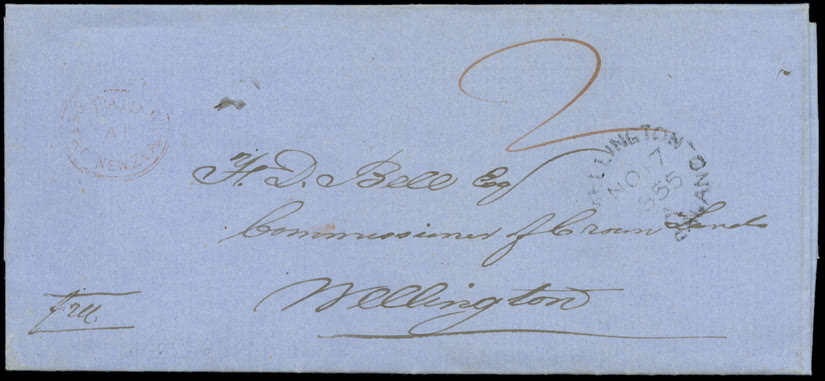 2
PAID
AT
NEW ZEALAND
WELLINGTON
NO 17
1855
F. D. Bell Esq
Commissioner of Crown Lands
Wellington
free